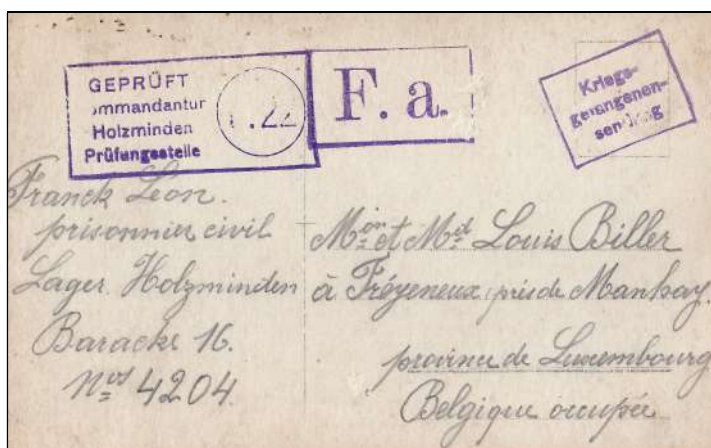 GEPRÜFT
ommandantur
Holzminden
Prüfungsstelle
.22
F. a.
Kriegs-
gefangenen-
sendung
Franck Leon.
prisonnier civil
Lager Holzminden
Baracke 16.
Nos 4204.
Mon et Med Louis Biller
à Fréyeneux près de Manhay.
province de Luxembourg
Belgique occupée